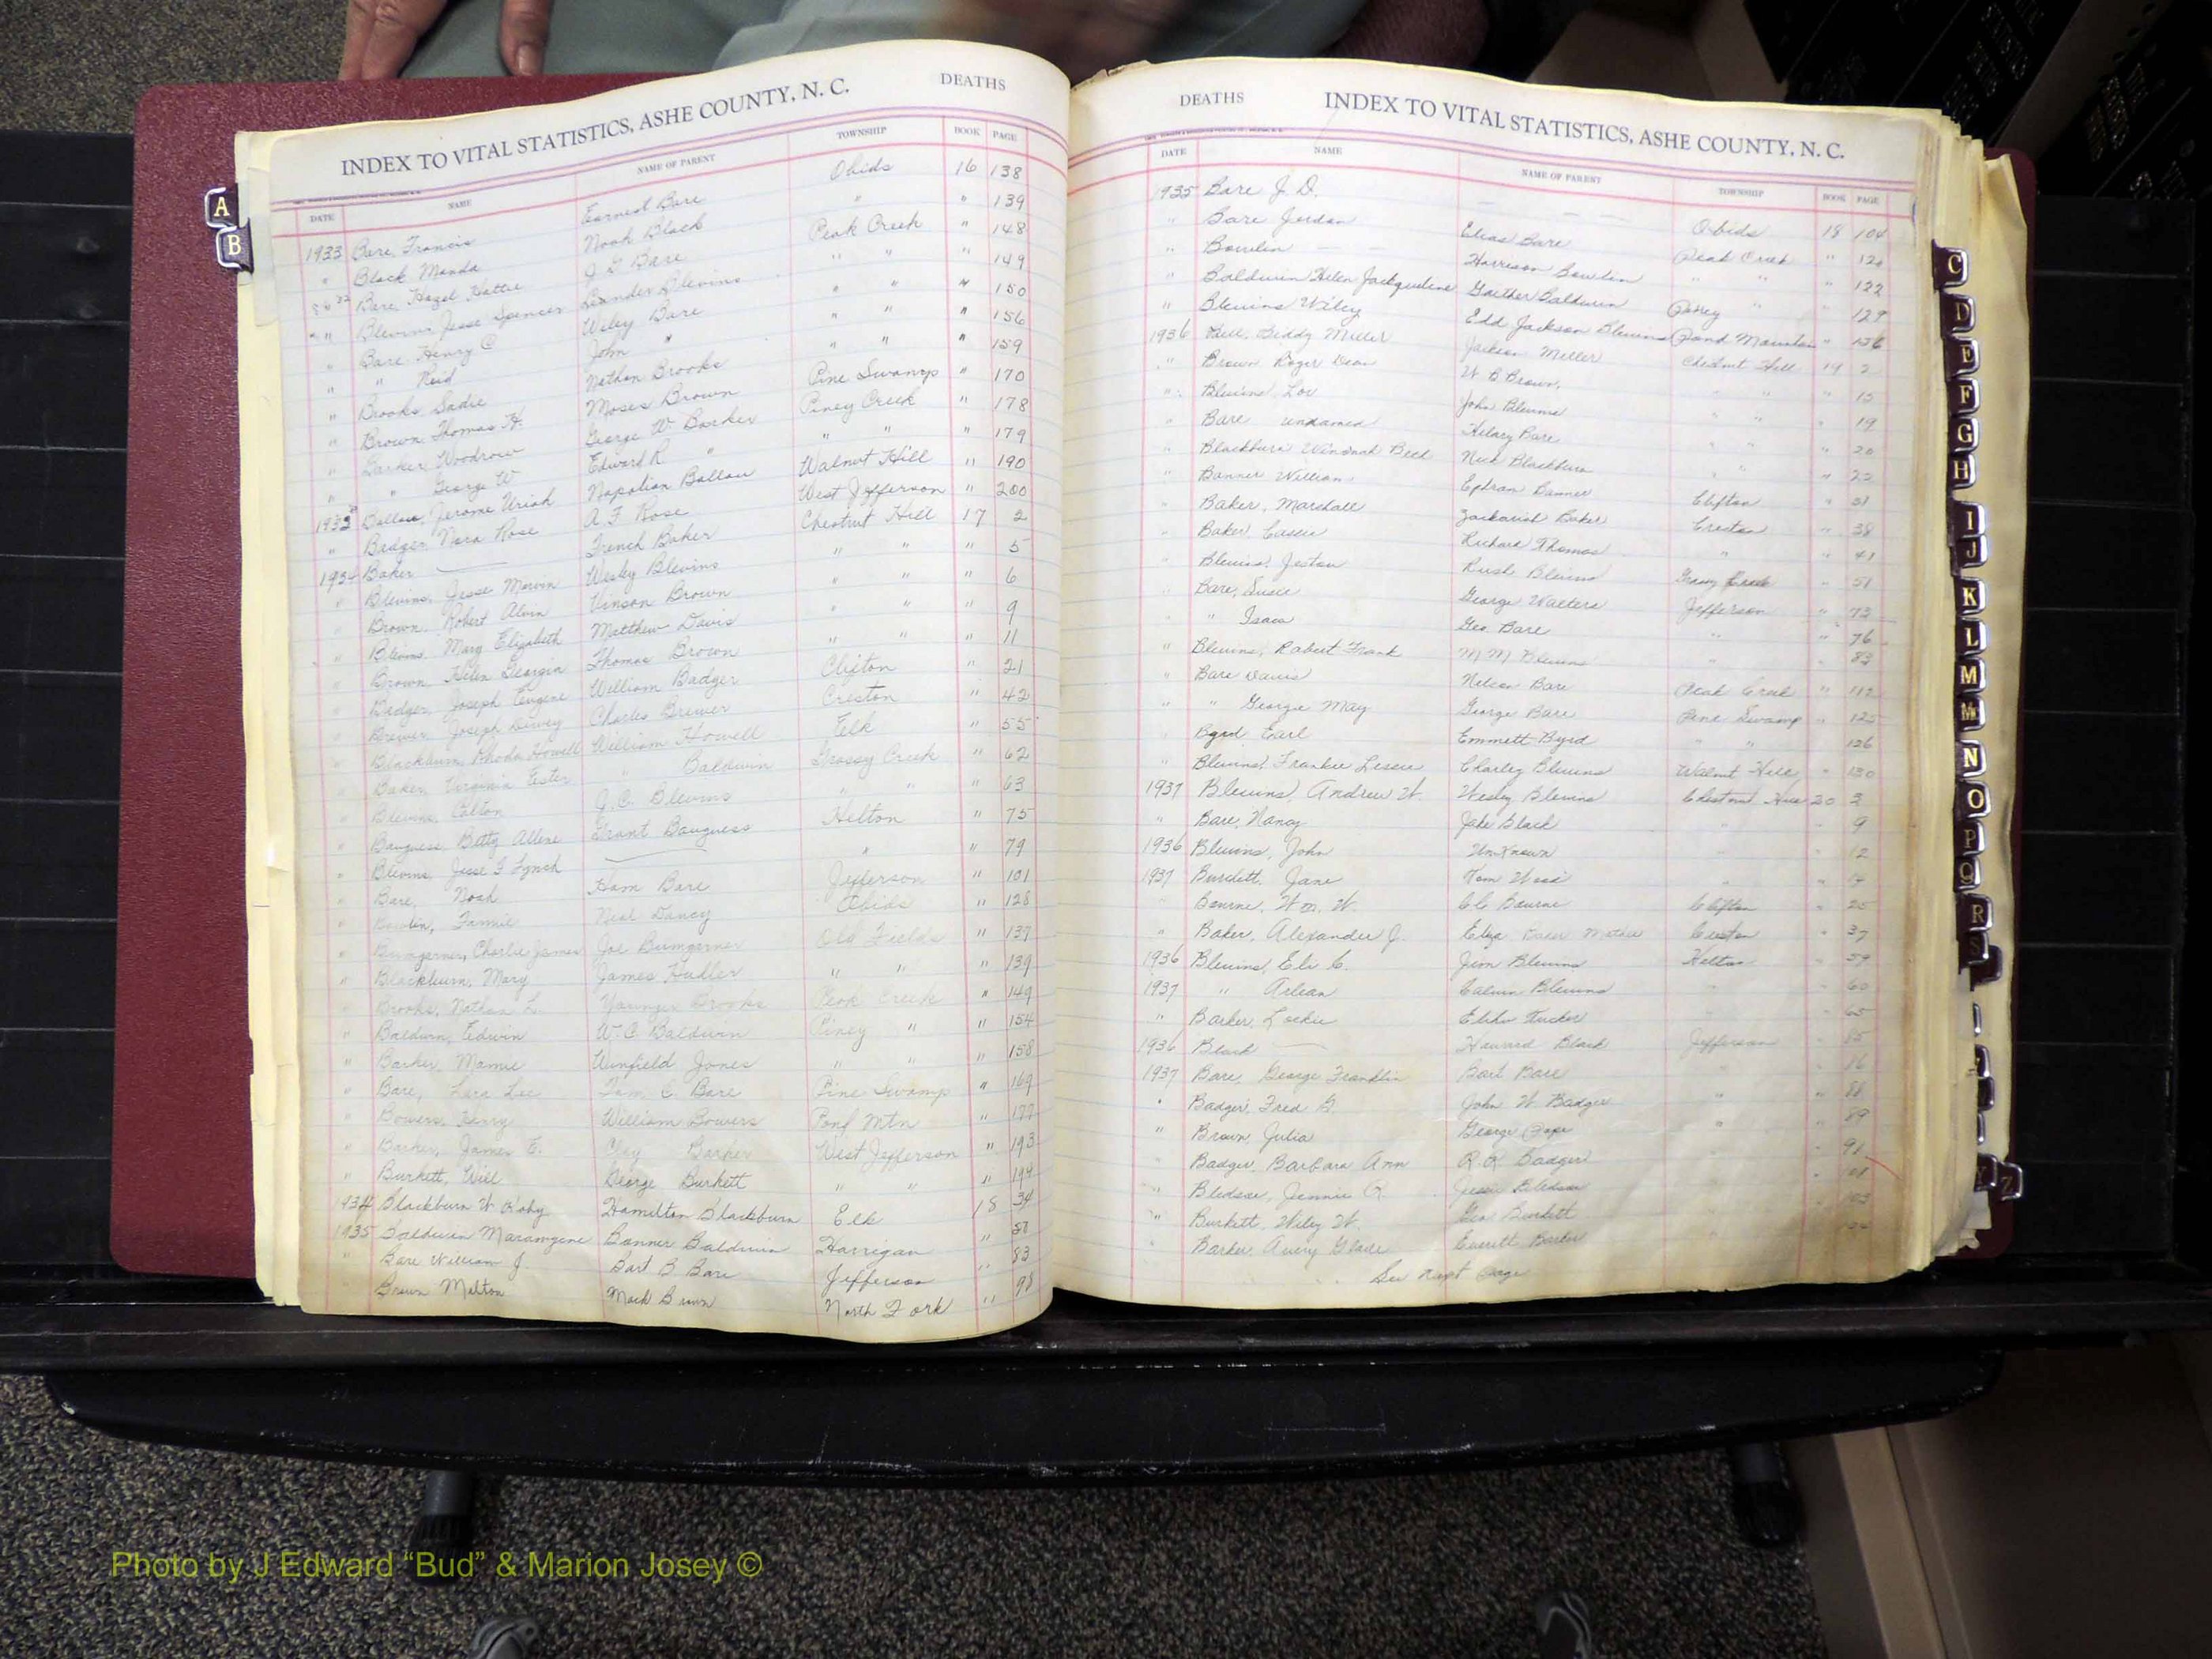 INDEX TO VITAL STATISTICS, ASHE COUNTY, N. C. DEATHS
DATE NAME NAME OF PARENT TOWNSHIP BOOK PAGE
1933 Bare, Francis Earnest Bare Obids 16 138
" Black Manda Noah Black " " 139
Bare, Hazel Hattie J G Bare Peak Creek " 148
" Blevins Jesse Spencer Leander Blevins " " " 149
" Bare Henry C Wiley Bare " " " 150
" " Reid John " " " " 156
" Brooks Sadie Nathan Brooks " " " 159
" Brown Thomas H. Moses Brown Pine Swamp " 170
" Barker Woodrow George W Barker Piney Creek " 178
" " George W Edward R " " " " 179
1933 Ballou, Jerome Uriah Napolian Ballou Walnut Hill " 190
" Badger Nora Rose A. F Rose West Jefferson " 200
1934 Baker —— French Baker Chestnut Hill 17 2
" Blevins, Jesse Marvin Wesley Blevins " " " 5
" Brown, Robert Alvin Vinson Brown " " " 6
" Blevins Mary Elizabeth Matthew Davis " " " 9
" Brown Helen Georgia Thomas Brown " " " 11
" Badger, Joseph Eugene William Badger Clifton " 21
" Brewer Joseph Dewey Charles Brewer Creston " 42
" Blackburn Rhoda Howell William Howell Elk " 55
" Baker Virginia Ester " Baldwin Grassy Creek " 62
" Blevins, Colton J. C. Blevins " " " 63
" Bauguess Betty Allene Grant Bauguess Helton " 75
" Blevins, Jesse F Lynch —— " " 79
" Bare, Noah Ham Bare Jefferson " 101
" Bowlin, Fannie Neal Dancy Obids " 128
" Bumgarner, Charlie James Joe Bumgarner Old Fields " 137
" Blackburn, Mary James Hudler " " " 139
" Brooks, Nathan L. Younger Brooks Peak Creek " 149
" Baldwin, Edwin W. C Baldwin Piney " " 154
" Barker, Mamie Winfield Jones " " " 158
" Bare, Lara Lee Tom C. Bare Pine Swamp " 169
" Bowers, Henry William Bowers Pond Mtn " 177
" Barker, James E. Clay Barker West Jefferson " 193
" Burkett, Will George Burkett " " " 194
1934 Blackburn W Roby Hamilton Blackburn Elk 18 34
1935 Baldwin Maramgene Banner Baldwin Harrigan " 50
" Bare William J Bart B Bare Jefferson " 83
Brown Melton Mack Brown North Fork " 98
DEATHS INDEX TO VITAL STATISTICS, ASHE COUNTY, N. C.
DATE NAME NAME OF PARENT TOWNSHIP BOOK PAGE
1935 Bare J. D. — — — Obids 18 104
" Bare Jordan Elias Bare Peak Creek " 120
" Bowlin — — Harrison Bowlin " " " 122
" Baldwin Helen Jacqueline Gaither Baldwin Piney " " 129
" Blevins Wiley Edd Jackson Blevins Pond Mountain " 156
1936 Bell, Biddy Miller Jackson Miller Chestnut Hill 19 2
" Brown Roger Dean W B Brown, " " " 15
" Blevins, Lou John Blevins " " " 19
" Bare unnamed Hilary Bare " " " 20
" Blackburn Winonah Beck Nick Blackburn " " 22
" Banner William Ephran Banner Clifton " 31
" Baker, Marshall Zachariah Baker Creston " 38
" Baker, Cassie Richard Thomas " " 41
" Blevins, Jeston Rush Blevins Grassy Creek " 51
" Bare, Susie George Walters Jefferson " 73
" " Isaac Geo. Bare " " 76
" Blevins, Robert Frank M M Blevins " " 83
" Bare Davis Nelson Bare Peak Creek " 112
" " Georgie May George Bare Pine Swamp " 125
Byrd Earl Emmett Byrd " " 126
" Blevins, Frankie Lessie Charley Blevins Walnut Hill " 130
1937 Blevins, Andrew W. Wesley Blevins Chestnut Hill 20 3
" Bare, Nancy Jake Black " " 9
1936 Blevins, John UnKnown " " 12
1937 Burdett, Jane Tom Wood " " 14
Bourne, Wm. W. C C Bourne Clifton " 25
" Baker, Alexander J. Eliza Baker Mother Creston " 37
1936 Blevins, Eli C. Jim Blevins Helton " 59
1937 " Arlean Calvin Blevins " " 60
" Barker, Lockie Elihu Tucker " 65
1936 Black —— Howard Black Jefferson " 85
1937 Bare, George Franklin Bart Bare " " 86
" Badger, Fred G. John W. Badger " " 88
" Brown, Julia George Pope " 89
Badger, Barbara Ann R. R. Badger " 91
" Bledsoe, Jennie G. Jessie Bledsoe " 101
" Burkett, Wiley W. Geo Burkett " 103
" Barker, Avery Glade Everett Barker "
See next page
A
B
C
D
E
F
G
H
I
J
K
L
M
Mc
N
O
P
Q
R
S
Y
Z
Photo by J Edward “Bud” & Marion Josey ©